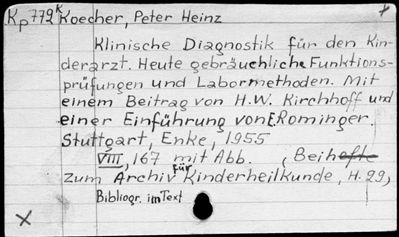 Kp 779 K Koecher, Peter Heinz
Klinische Diagnostik für den Kin-
derarzt. Heute gebräuchliche Funktions-
prüfungen und Labormethoden. Mit
einem Beitrag von H.W. Kirchhoff und
einer Einführung von E. Rominger.
Stuttgart, Enke, 1955
VIII, 167 mit Abb. , Beihefte
zum Archiv für Kinderheilkunde, H. 29,
Bibliogr. im Text